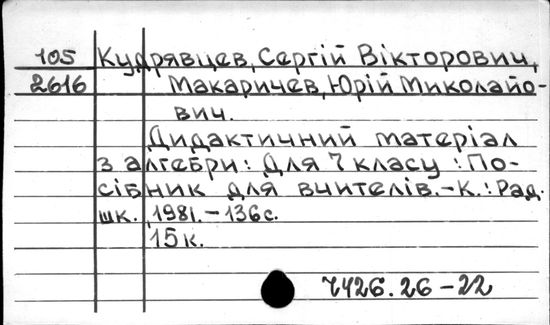 105 Кудрявцев, Сергій Вікторович,
2616 Макаричев, Юрій Миколайо-
вич.
Дидактичний матеріал
з алгебри: Для 7 класу: По-
сібник для вчителів. – К.: Рад.
шк. 1981. – 136с.
15к.
7426.26 – 22